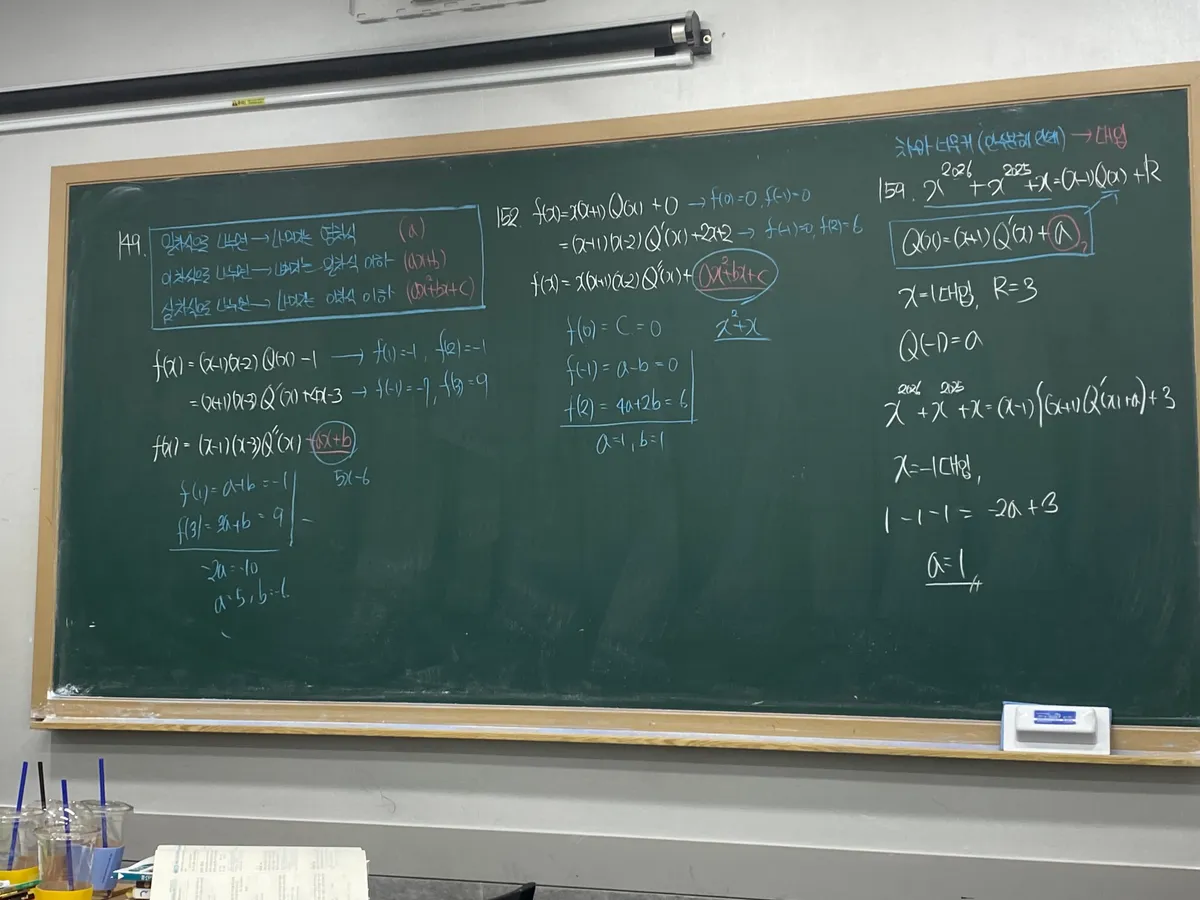 149.
일차식으로 나누면 → 나머지는 상수 (a)
이차식으로 나누면 → 나머지는 일차식 이하 (ax+b)
삼차식으로 나누면 → 나머지는 이차식 이하 (ax²+bx+c)
f(x) = (x-1)(x-2) Q(x) - 1 → f(1)=-1, f(2)=-1
= (x+1)(x-3) Q'(x) + 4x-3 → f(-1)=-7, f(3)=9
f(x) = (x-1)(x-3) Q''(x) + ax+b
5x-6
f(1) = a+b = -1
f(3) = 3a+b = 9
-2a = -10
a=5, b=-6
152. f(x) = x(x+1) Q(x) + 0 → f(0)=0, f(-1)=0
= (x+1)(x-2) Q'(x) + 2x+2 → f(-1)=0, f(2)=6
f(x) = x(x+1)(x-2) Q''(x) + ax²+bx+c
f(0) = C = 0
x²+x
f(-1) = a-b = 0
f(2) = 4a+2b = 6
a=1, b=1
→ 대입
159. x²⁰²⁶ + x²⁰²⁵ + x = (x-1) Q(x) + R
Q(x) = (x+1) Q'(x) + a
x=1 대입, R=3
Q(-1) = a
x²⁰²⁶ + x²⁰²⁵ + x = (x-1){(x+1) Q'(x) + a} + 3
x=-1 대입,
1 - 1 - 1 = -2a + 3
a = 1